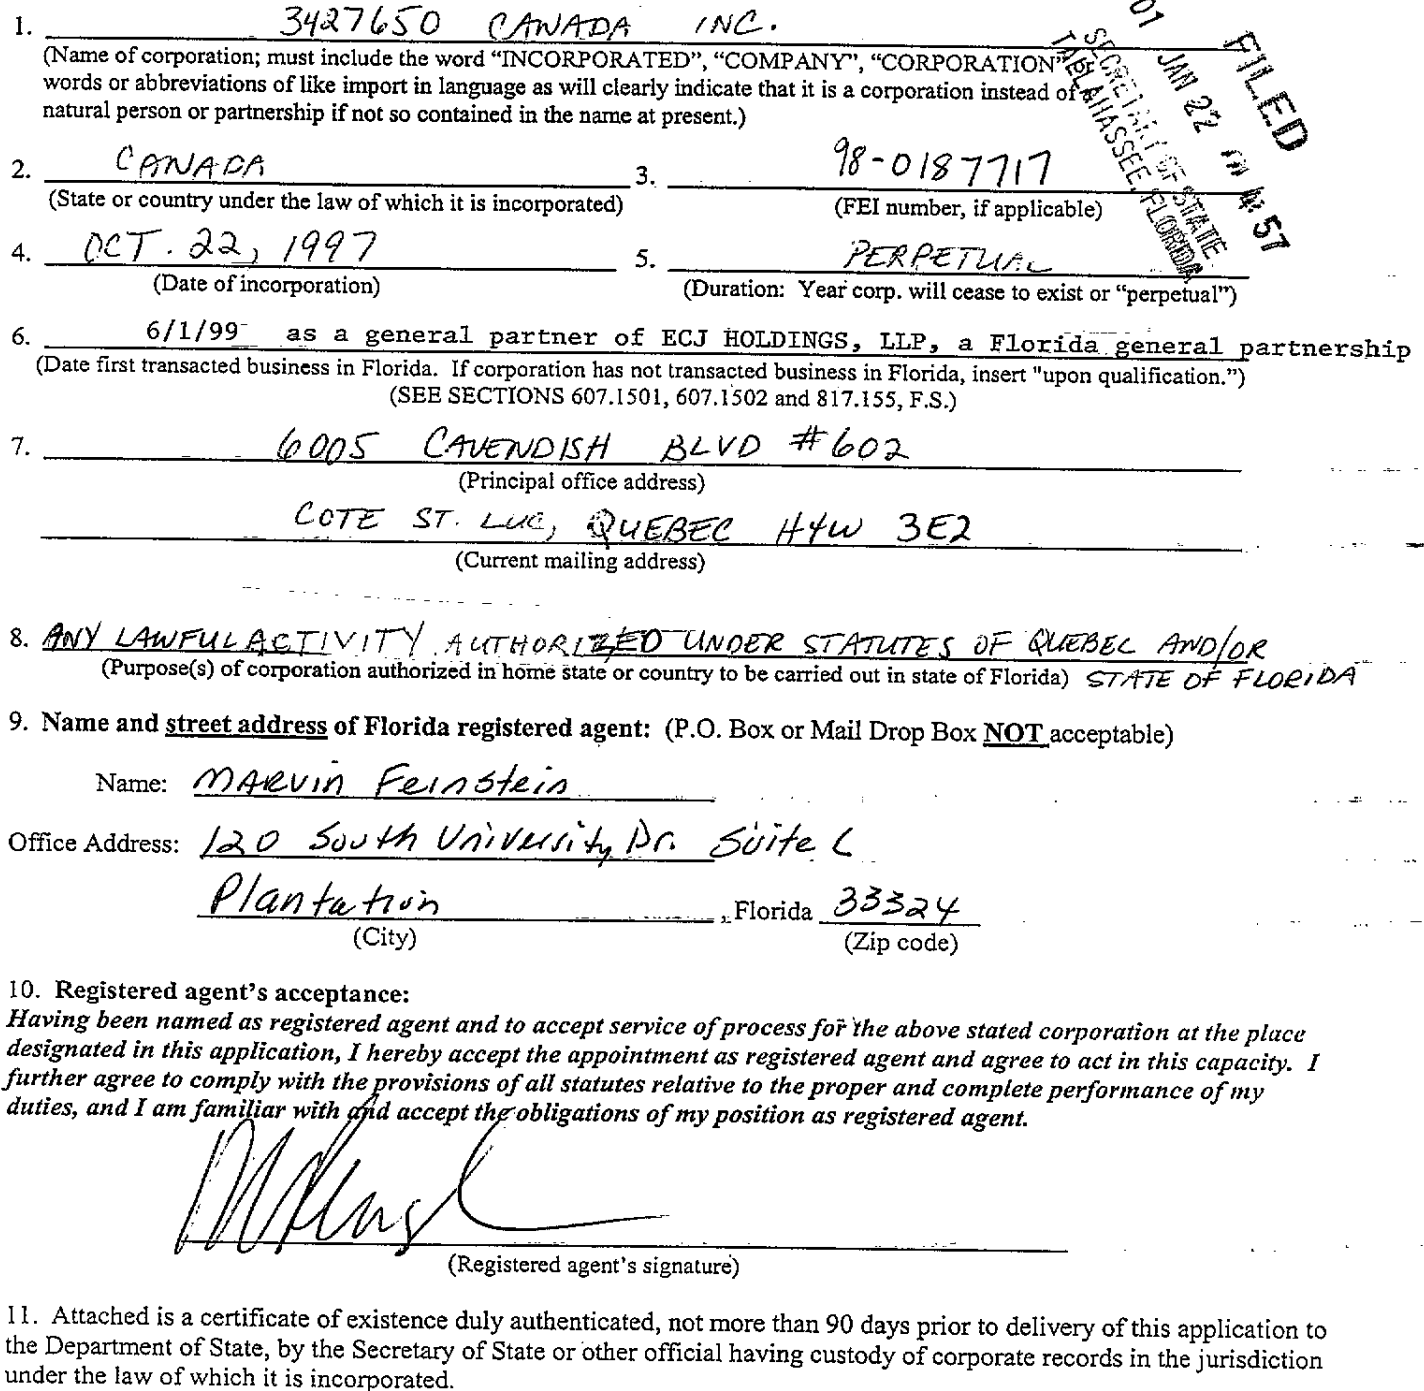 1. 3427650 CANADA INC.
(Name of corporation; must include the word “INCORPORATED”, “COMPANY”, “CORPORATION”
words or abbreviations of like import in language as will clearly indicate that it is a corporation instead of a
natural person or partnership if not so contained in the name at present.)
01 JAN 22 PM 4:57
FILED
SECRETARY OF STATE
TALLAHASSEE, FLORIDA
2. CANADA 3. 98-0187717
(State or country under the law of which it is incorporated) (FEI number, if applicable)
4. OCT. 22, 1997 5. PERPETUAL
(Date of incorporation) (Duration: Year corp. will cease to exist or “perpetual”)
6. 6/1/99 as a general partner of ECJ HOLDINGS, LLP, a Florida general partnership
(Date first transacted business in Florida. If corporation has not transacted business in Florida, insert "upon qualification.”)
(SEE SECTIONS 607.1501, 607.1502 and 817.155, F.S.)
7. 6005 CAVENDISH BLVD #602
(Principal office address)
COTE ST. LUC, QUEBEC H4W 3E2
(Current mailing address)
8. ANY LAWFUL ACTIVITY AUTHORIZED UNDER STATUTES OF QUEBEC AND/OR
(Purpose(s) of corporation authorized in home state or country to be carried out in state of Florida) STATE OF FLORIDA
9. Name and street address of Florida registered agent: (P.O. Box or Mail Drop Box NOT acceptable)
Name: MARVIN Feinstein
Office Address: 120 South University Dr. Suite C
Plantation, Florida 33324
(City) (Zip code)
10. Registered agent’s acceptance:
Having been named as registered agent and to accept service of process for the above stated corporation at the place
designated in this application, I hereby accept the appointment as registered agent and agree to act in this capacity. I
further agree to comply with the provisions of all statutes relative to the proper and complete performance of my
duties, and I am familiar with and accept the obligations of my position as registered agent.
(Registered agent’s signature)
11. Attached is a certificate of existence duly authenticated, not more than 90 days prior to delivery of this application to
the Department of State, by the Secretary of State or other official having custody of corporate records in the jurisdiction
under the law of which it is incorporated.